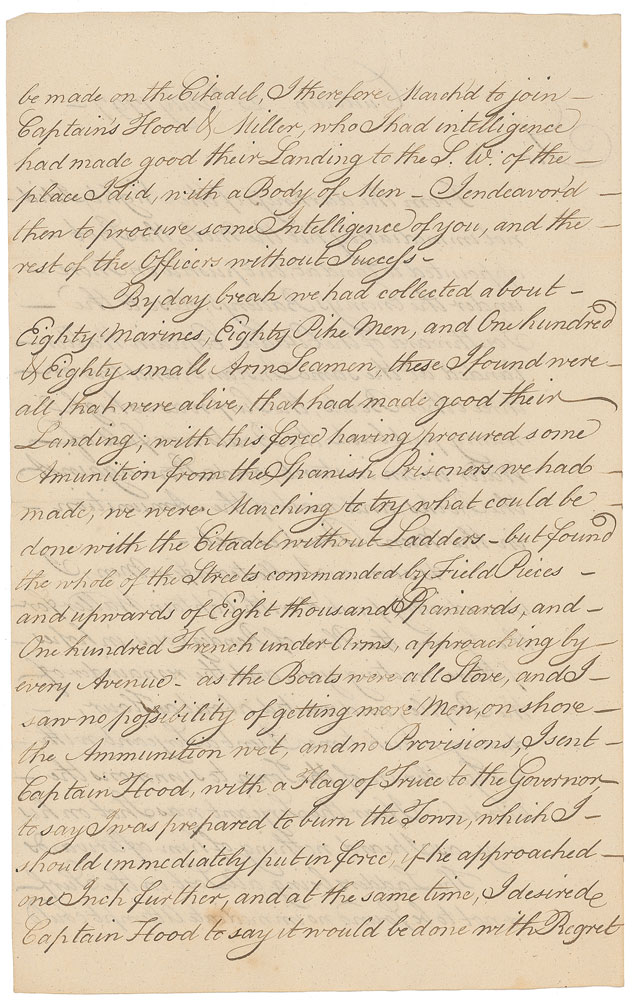 be made on the Citadel, I therefore March'd to join –
Captain's Hood & Miller, who I had intelligence
had made good their Landing to the S. W. of the –
place I did, with a Body of Men – I endeavor'd –
then to procure some Intelligence of you, and the –
rest of the Officers without Success –
By day break we had collected about –
Eighty Marines, Eighty Pike Men, and One hundred
& Eighty small Arm Seamen, these I found were –
all that were alive, that had made good their
Landing; with this force having procured some
Amunition from the Spanish Prisoners we had –
made, we were Marching to try what could be –
done with the Citadel without Ladders – but found
the whole of the Streets commanded by Field Pieces –
and upwards of Eight thousand Spaniards, and –
One hundred French under Arms, approaching by –
every Avenue – as the Boats were all Stove, and I –
saw no possibility of getting more Men, on shore –
the Ammunition wet, and no Provisions, I sent –
Captain Hood, with a Flag of Truce to the Governor,
to say I was prepared to burn the Town, which I –
should immediately put in force, if he approached –
one Inch further, and at the same time, I desired
Captain Hood to say it would be done with Regret